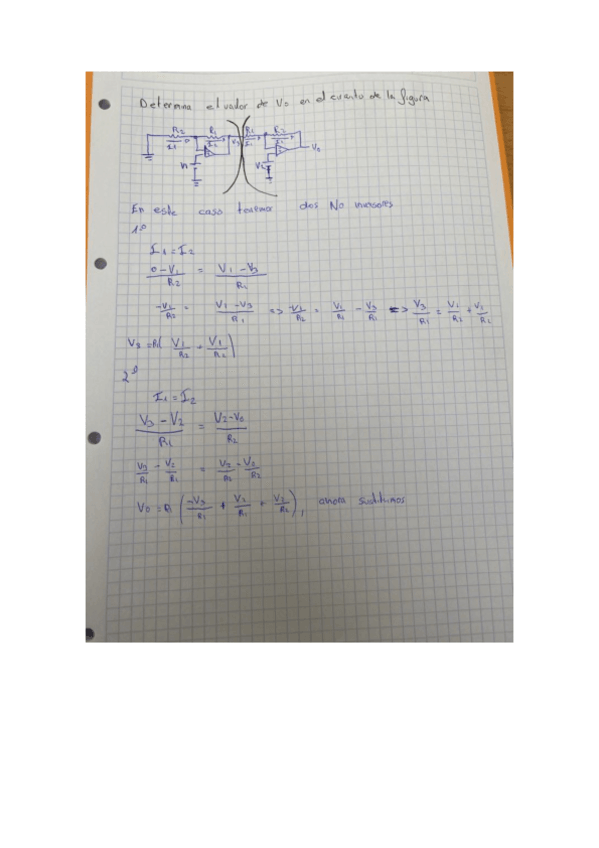 Determina el valor de Vo en el cuarto de la figura
R2 R1 V3 R1 R2
I1 I2 I1 I2 Vo
V1 V2
En este caso tenemos dos No inversores
1º
I1 = I2
0-V1/R2 = V1-V3/R1
-V1/R2 = V1-V3/R1 => -V1/R2 = V1/R1 - V3/R1 => V3/R1 = V1/R1 + V1/R2
V3 = R1( V1/R2 + V1/R2 )
2º
I1 = I2
V3-V2/R1 = V2-V0/R2
V3/R1 - V2/R1 = V2/R2 - V0/R2
V0 = R1 ( -V3/R1 + V2/R1 + V2/R2 ), ahora sustituimos